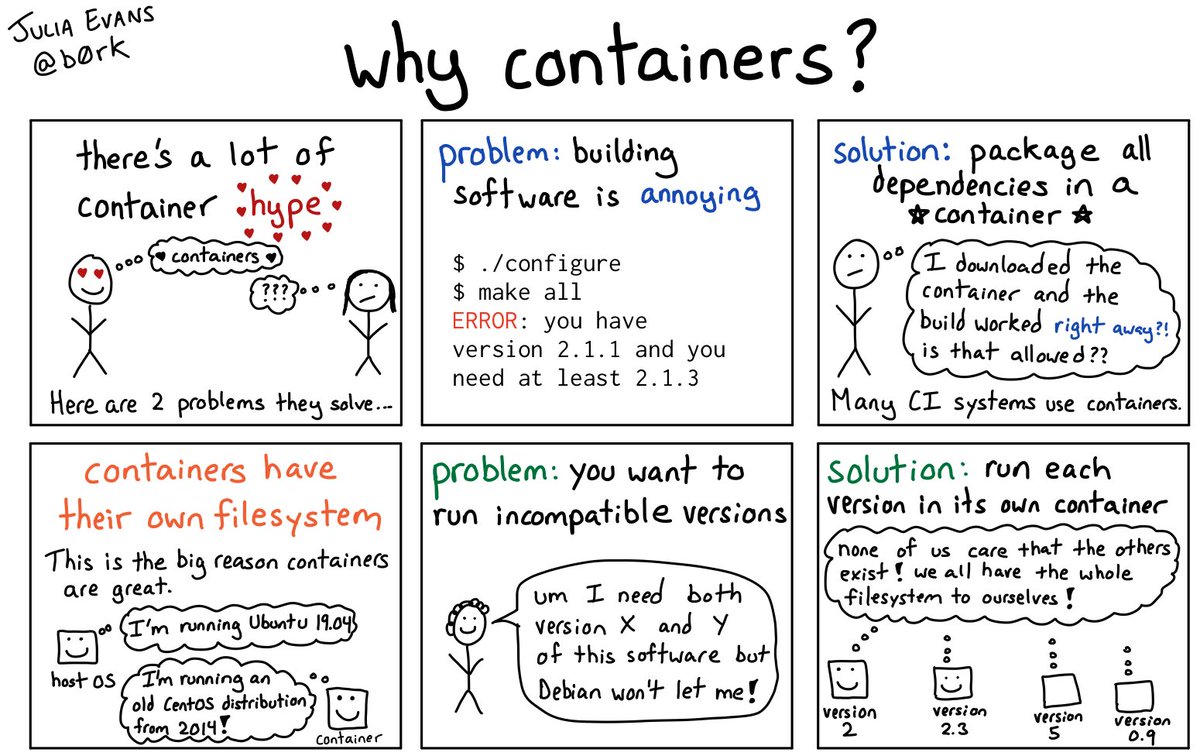 JULIA EVANS
@b0rk
why containers?
there's a lot of
container hype
containers
???
Here are 2 problems they solve...
problem: building
software is annoying
$ ./configure
$ make all
ERROR: you have
version 2.1.1 and you
need at least 2.1.3
solution: package all
dependencies in a
★container★
I downloaded the
container and the
build worked right away?!
is that allowed??
Many CI systems use containers.
containers have
their own filesystem
This is the big reason containers
are great.
I'm running Ubuntu 19.04
host OS
I'm running an
old CentOS distribution
from 2014!
container
problem: you want to
run incompatible versions
um I need both
version X and Y
of this software but
Debian won't let me!
solution: run each
version in its own container
none of us care that the others
exist! we all have the whole
filesystem to ourselves!
version
2
version
2.3
version
5
version
0.9